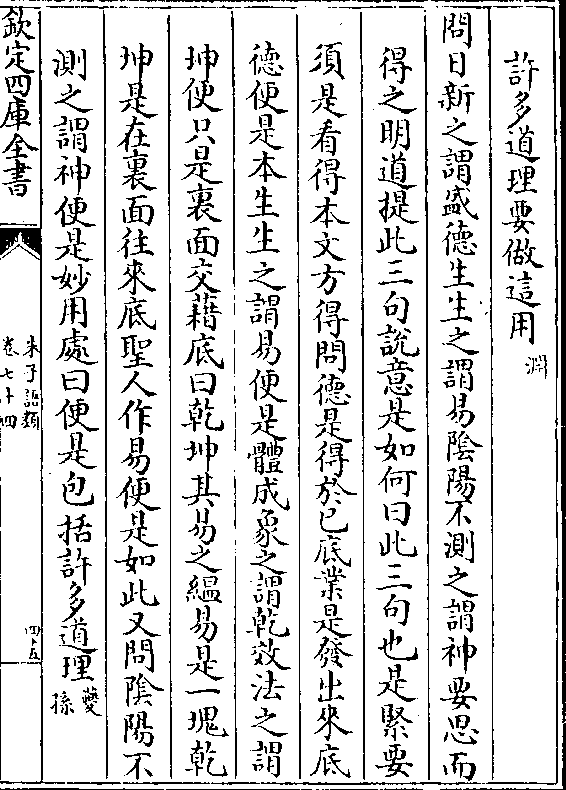 許多道理要做這用 淵
問日新之謂盛德生生之謂易陰陽不測之謂神要思而
得之明道提此三句說意是如何曰此三句也是緊要
須是看得本文方得問德是得於已底業是發出來底
德便是本生生之謂易便是體成象之謂乾效法之謂
坤便只是裏面交藉底曰乾坤其易之緼易是一塊乾
坤是在裏面往來底聖人作易便是如此又問隂陽不
測之謂神便是妙用處曰便是包括許多道理 䕫孫
欽定四庫全書
朱子語類
卷七十四
四十五